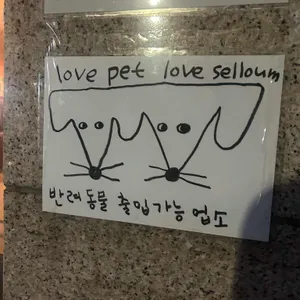 love pet love selloum
반려동물 출입가능 업소